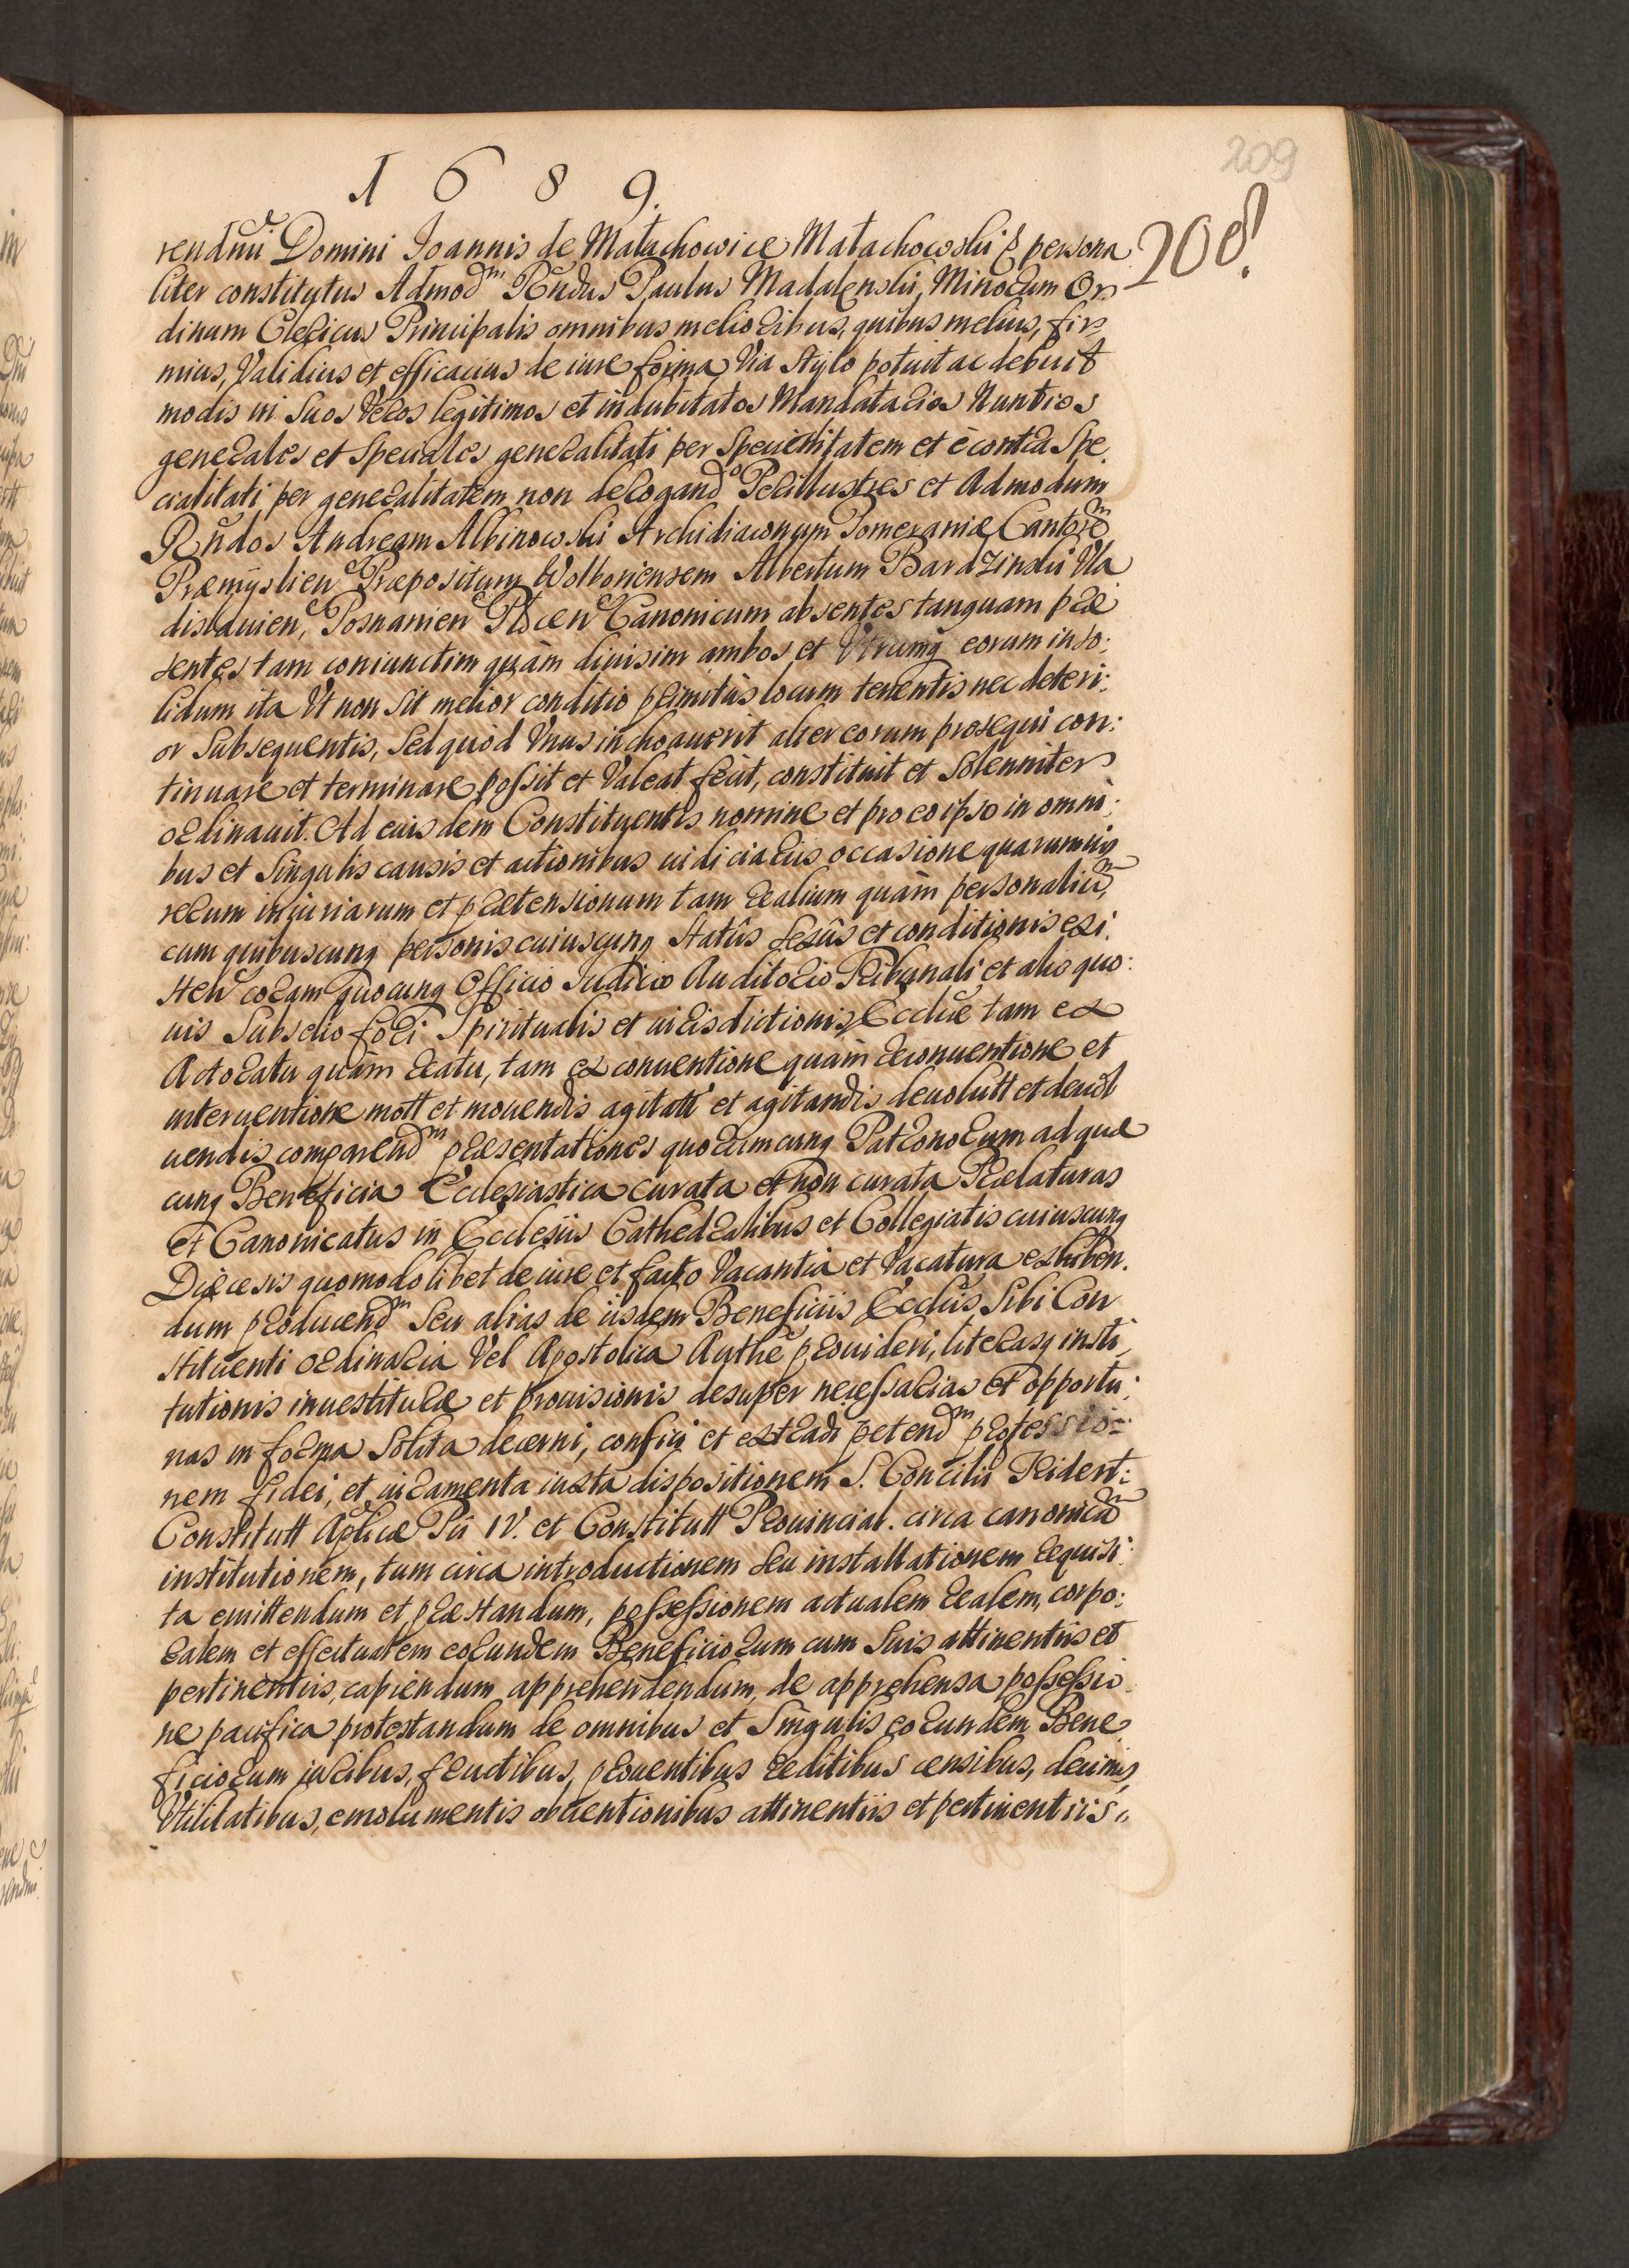 209
1689.
208.
rendmi Domini Joannis de Małachowice Małachowski &c persona
liter constitutus Admodm Rndus Paulus Madalenski, Minorum Or
dinum Clericus Principalis omnibus melioribus, quibus melius, fir
mius, Validius et efficacius de iure forma Via Stylo potuit ac debuit
modis in Suos Veros legitimos et indubitatos Mandatarios Nuntios
generales et Speciales generalitati per Specialitatem et è contra Spe
cialitati per generalitatem non derogando Perillustres et Admodum
Rndos Andream Albinowski Archidiaconum Pomeraniæ Cantorem
Præmyslien Præpositum Wolboriensem Albertum Bardzinski Vla
dislauien, Posnanien Plocen Canonicum absentes tanquam præ
sentes tam coniunctim quàm diuisim ambos et Vtrumq eorum in so:
lidum ita Vt non sit melior conditio primitùs locum tenentis nec deteri:
or Subsequentis, Sed quòd Vnus inchoauerit alter eorum prosequi con:
tinuare et terminare possit et Valeat fecit, constituit et Solenniter
ordinauit. Ad eiusdem Constituentis nomine et pro eo ipso in omni:
bus et Singulis causis et actionibus iudiciariis occasione quarumuis
rerum injuriarum et prætensionum tam realium quàm personaliũm,
cum quibuscunq personis cuiuscunq Statûs Sexûs et conditionis exi
sten coram quocunq Officio Judicio Auditorio Tribunali et alio quo:
uis Subselio fori Spiritualis et iurisdictionis Ecclae tam ex
Actoratu quàm reatu, tam ex conuentione quàm reconuentione et
interuentione mott et mouendis agitatt et agitandis deuolutt et deuol
uendis comparendm præsentationes quorumcunq Patronorum ad quæ
cunq Beneficia Ecclesiastica curata et non curata Prælaturas
et Canonicatus in Ecclesiis Cathedralibus et Collegiatis cuiuscunq
Diæcesis quomodolibet de iure et facto Vacantia et Vacatura exhiben.
dum producendm Seu alias de iisdem Beneficiis Ecclis Sibi Con
stituenti ordinaria Vel Apostolica Authe prouideri, literasq insti
tutionis inuestituræ et prouisionis desuper necessarias et opportu:
nas in forma Solita decerni, confici et extradi petendm professio:
nem fidei, et iuramenta iuxta dispositionem S. Concilii Trident:
Constitutt Aplicæ Pii IV. et Constitutt Prouincial. circa canonicãm
institutionem, tum circa introductionem Seu installationem requisi:
ta emittendum et præstandum, possessionem actualem realem, corpo:
ralem et effectualem eorundem Beneficiorum cum Suis attinentiis et
pertinentiis, capiendum apprehendendum, de apprehensa possessio
ne pacifica protestandum de omnibus et Singulis eorundem Bene
ficiorum iuribus, fructibus, prouentibus reditibus censibus, decimis,
Vtilitatibus, emolumentis obuentionibus attinentiis et pertinentiis